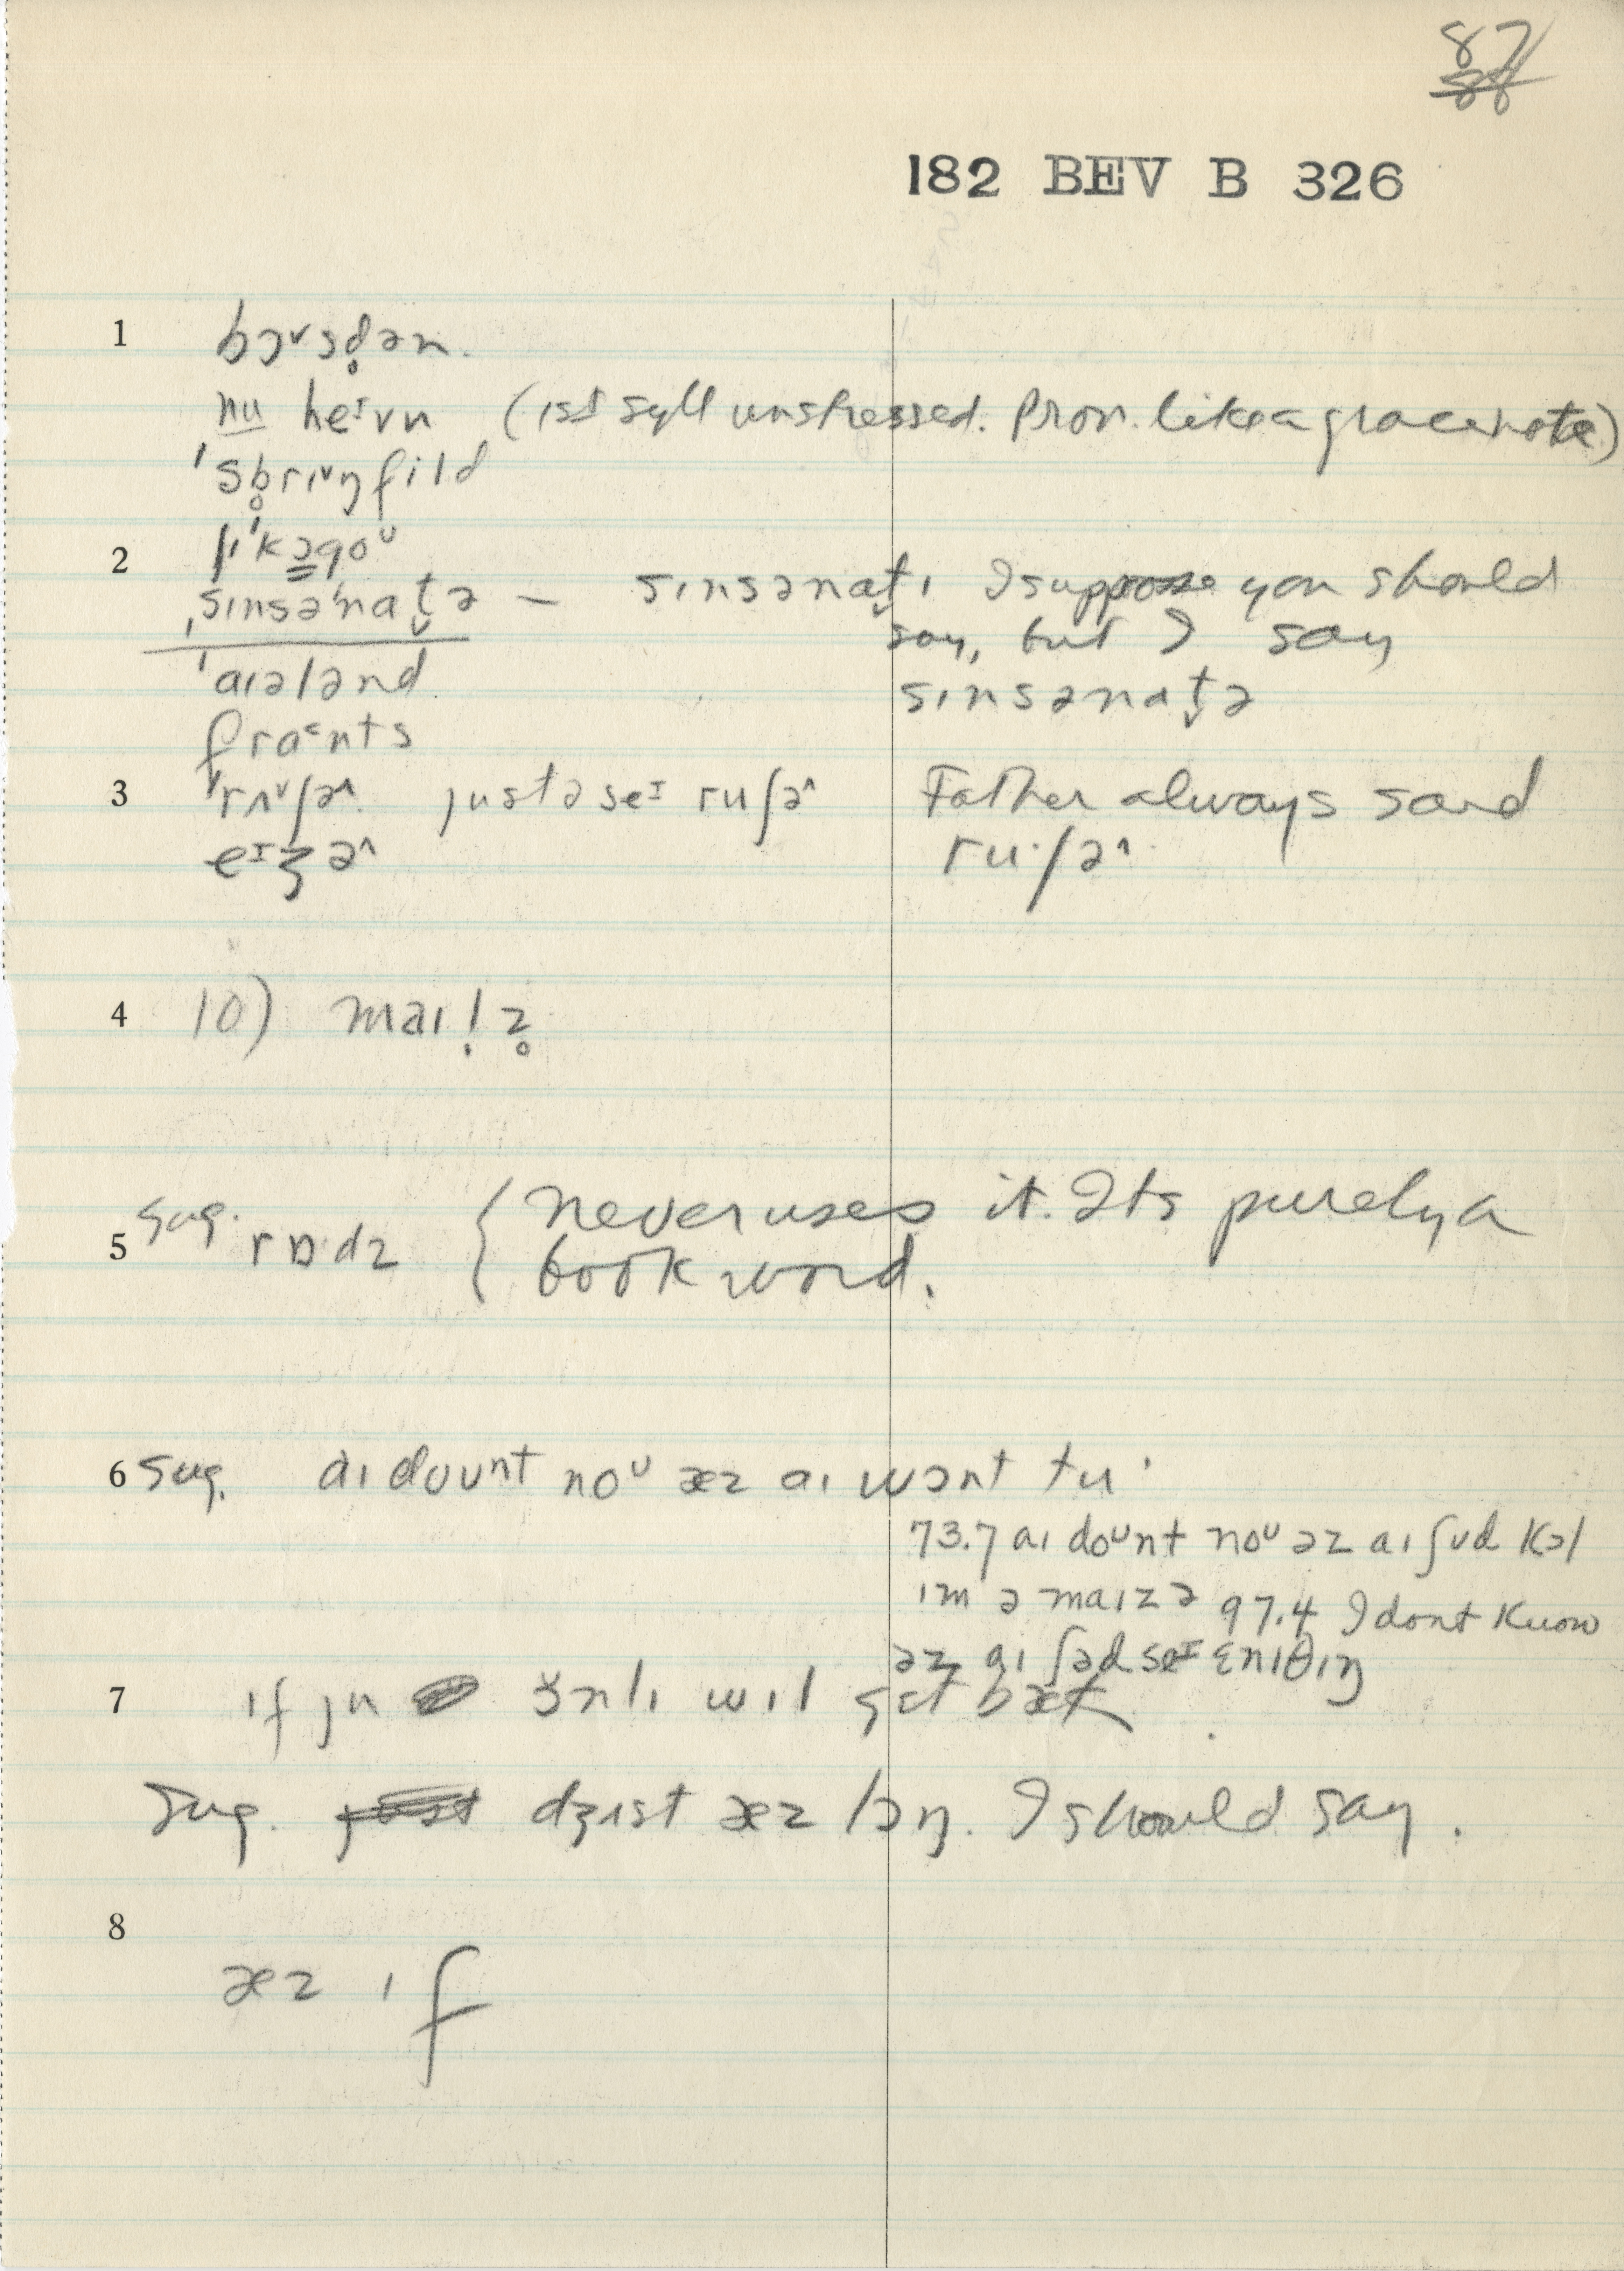 87
88
182 BEV B 326
1 bɔ˅sd̥ən.
nu heɪvn (1st syll unstressed. Pron. like a grace note)
'sb̥rɪ˅ŋfild
2 ʃɪ'kɔgoᴜ
ˌsɪnsə'nat̬ə – sɪnsənat̬ɪ I suppose you should
say, but I say
sɪnsənat̬ə
'aɪələnd
fraᵋnts
3 'rʌ˅ʃə^ justə seɪ ruʃə^ Father always said
ru·ʃə^
eɪʒə^
4 10) maɪl̩z̥
5 sug. rɒdz { Never uses it. Its purely a
book word.
6 sug. aɪ doᴜnt noᴜ æz aɪ wɔnt tu·
73.7 aɪ doᴜnt noᴜ əz aɪ ʃʊd kɔl
ɪm ə maɪzə 97.4 I dont know
əz aɪ ʃəd seɪ ɛnɪθɪŋ
7 ɪf ju ɔ̆nlɪ wɪl gɛt bæk
Sug. dʒɪst æz lɔŋ. I should say.
8
æz ɪf